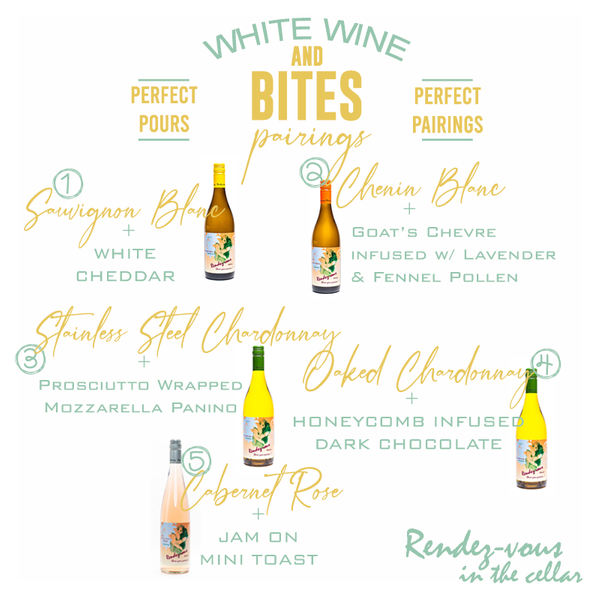 WHITE WINE
AND
BITES
pairings
PERFECT
POURS
PERFECT
PAIRINGS
1
Sauvignon Blanc
+
WHITE
CHEDDAR
2
Chenin Blanc
+
Goat's Chevre
infused w/ Lavender
& Fennel Pollen
3
Stainless Steel Chardonnay
+
Prosciutto Wrapped
Mozzarella Panino
4
Oaked Chardonnay
+
HONEYCOMB INFUSED
DARK CHOCOLATE
5
Cabernet Rose
+
JAM ON
MINI TOAST
Rendez-vous
in the cellar